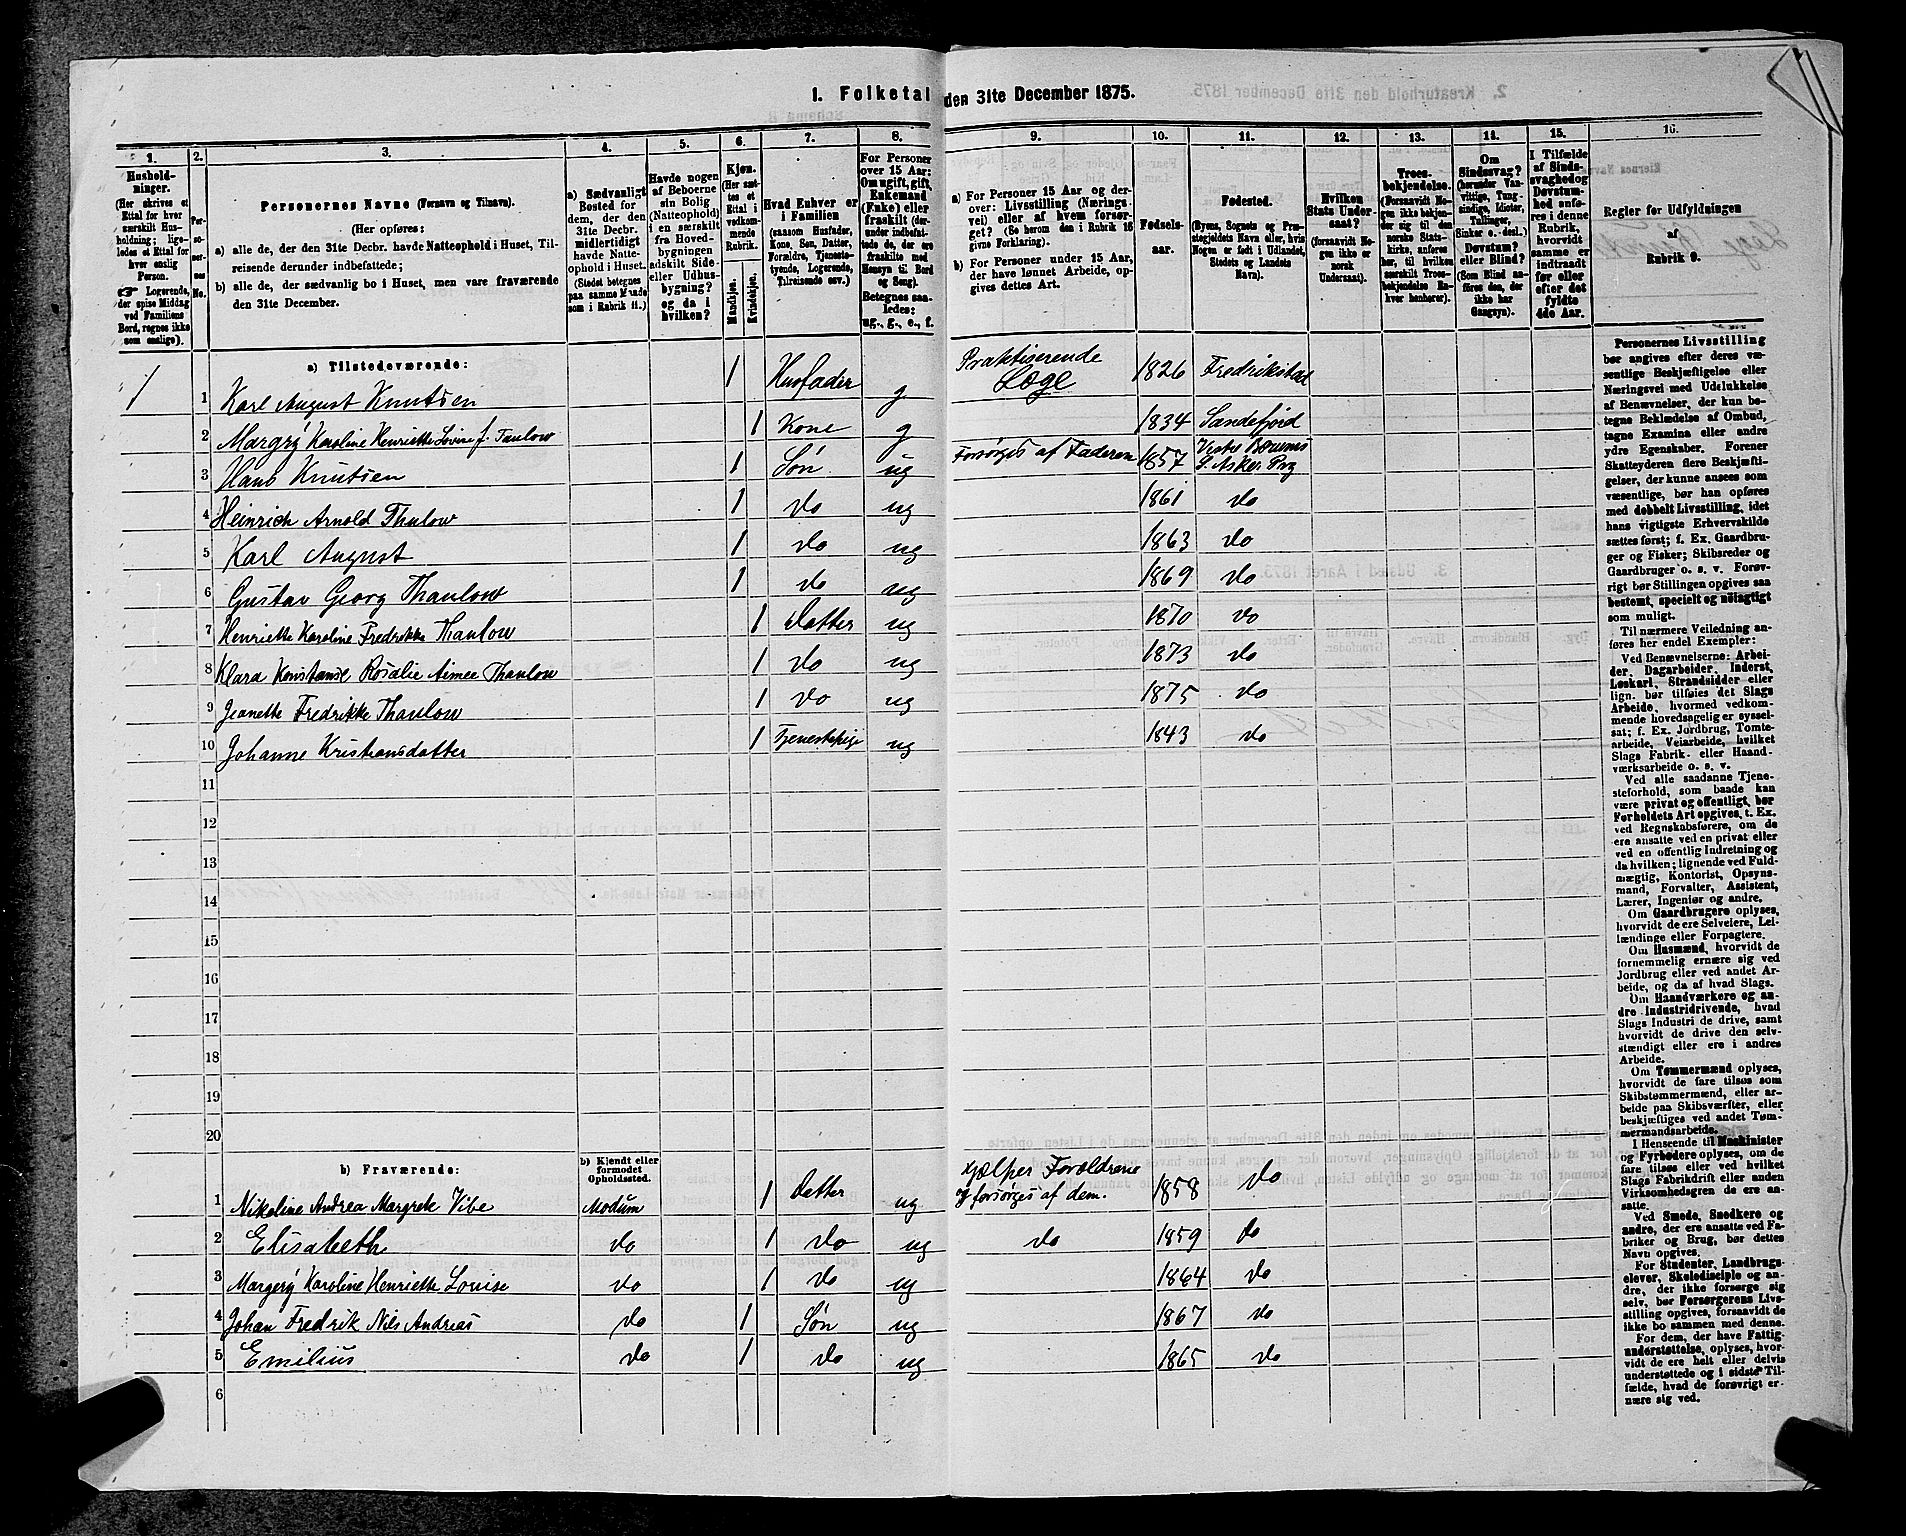 1. Folketal den 31te December 1875.
1.
2.
3.
4.
5.
6.
7.
8.
9.
10.
11.
12.
13.
14.
15.
16.
Husholdninger.
(Her skrives et
Ettal for hver
særskilt Husholdning; ligeledes et Ettal for
hver enslig
Person.
☞ Logerende,
der spise Middag
ved Familiens
Bord, regnes ikke
som enslige).
Personernes No.
Personernes Navne (Fornavn og Tilnavn).
(Her opføres:
a) alle de, der den 31te Decbr. havde Natteophold i Huset, Tilreisende derunder indbefattede;
b) alle de, der sædvanlig bo i Huset, men vare fraværende
den 31te December.
a) Sædvanligt
Bosted for
dem, der den
31te Decbr.
midlertidigt
havde Natteophold i Huset.
(Stedet betegnes
paa samme Maade
som i Rubrik 11.)
Havde nogen
af Beboerne
sin Bolig
(Natteophold)
i en særskilt
fra Hovedbygningen
adskilt Side-
eller Udhusbygning?
og da i
hvilken?
Kjøn.
(Her sættes et
Ettal i
vedkommende
Rubrik.
Mandkjøn.
Kvindekjøn.
Hvad Enhver er
i Familien
(saasom Husfader,
Kone, Søn, Datter,
Forældre, Tjenestetyende, Logerende,
Tilreisende osv.)
For Personer
over 15 Aar:
Om ugift, gift,
Enkemand
(Enke) eller
fraskilt (derunder indbefattede de, der ere
fraskilte med
Hensyn til Bord
og Seng).
Betegnes saaledes:
ug., g., e., f.
a) For Personer 15 Aar og derover: Livsstilling (Næringsvei) eller af hvem forsørget? (Se herom den i Rubrik 16
givne Forklaring).
b) For Personer under 15 Aar,
der have lønnet Arbeide, opgives dettes Art.
Fødselsaar.
Fødested.
(Byens, Sognets og Præstegjeldets Navn eller, hvis
Nogen er født i Udlandet,
Stedets og Landets
Navn).
Hvilken
Stats Undersaat?
(forsaavidt Nogen ikke er
norsk
Undersaat).
Troesbekjendelse.
(Forsaavidt Nogen ikke bekjender sig til den
norske Statskirke, anføres
her, til hvilken
særskilt Troesbekjendelse Rakver henhører).
Om
Sindssvag?
(herunder Vanvittige, Tungsindige, Idioter,
Tullinger,
Sinker o. desl.)
Døvstum?
eller Blind?
(Som Blind anføres den, der
ikke har
Gangsyn).
I Tilfælde
af Sindssvaghed og
Døvstumhed anføres i denne
Rubrik,
hvorvidt
samme er
indtraadt
før eller
efter det
fyldte
4de Aar.
Regler for Udfyldningen
af
Rubrik 9.
a) Tilstedeværende:
1 1 Karl August Knutsen 1 Husfader g Praktiserende Læge 1826 Fredrikstad
2 Margrý Karoline Henriette Lovise f. Taulow 1 Kone g 1834 Sandefjord
3 Hans Knutsen 1 Søn ug Forsørges af Faderen 1857 Vestre Bærums S. Asker Prg
4 Heinrich Arnold Thulow 1 do ug 1861 do
5 Karl August 1 do ug 1863 do
6 Gustav Georg Thaulow 1 do ug 1869 do
7 Henriette Karoline Fredrikke Thaulow 1 datter ug 1870 do
8 Klara Konstanse Rosalie Aimee Thaulow 1 do ug 1873 do
9 Jeanette Fredrikke Thaulow 1 do ug 1875 do
10 Johanne Kristiansdatter 1 Tjenestepige ug 1843 do
11
12
13
14
15
16
17
18
19
20
b) Fraværende:
b) Kjendt eller
formodet
Opholdssted.
1 Nikoline Andrea Margrete Vibe Modum 1 datter ug Hjælper Forældrene og forsørges af dem. 1858 do
2 Elisabeth do 1 do ug do 1859 do
3 Margerý Karoline Henriette Louise do 1 do ug 1864 do
4 Johan Fredrik Nils Andreas do 1 Søn ug 1867 do
5 Emilius do 1 do ug 1865 do
6
Personernes Livsstilling
bør angives efter deres væsentlige Beskjæftigelse eller
Næringsvei med Udelukkelse
af Benævnelser, der kun betegne Beklædelse af Ombud,
tagne Examina eller andre
ydre Egenskaber. Forener
Skatteyderen flere Beskjæftigelser, der kunne ansees som
væsentlige, bør han opføres
med dobbelt Livsstilling, idet
hans vigtigste Erhvervskilde
sættes først; f. Ex. Gaardbruger og Fisker; Skibsreder og
Gaardbruger o. s. v. Forøvrigt bør Stillingen opgives saa
bestemt, specielt og nøiagtigt
som muligt.
Til nærmere Veiledning anføres her endel Exempler:
Ved Benævnelserne: Arbeider, Dagarbeider, Inderst,
Løskarl, Strandsidder eller
lign. bør tilføies det Slags
Arbeide, hvormed vedkommende hovedsagelig er sysselsat; f. Ex. Jordbrug, Tomtearbeide, Veiarbeide, hvilket
Slags Fabrik- eller Haandværksarbeide o. s. v.
Ved alle saadanne Tjenesteforhold, som baade kan
være privat og offentligt, bør
Forholdets Art opgives, t. Ex.
ved Regnskabsførere, om de
ere ansatte ved en privat eller
ved en offentlig Indretning og
da hvilken; lignende ved Fuldmægtig, Kontorist, Opsynsmand, Forvalter, Assistent,
Lærer, Ingeniør og andre.
Om Gaardbrugere oplyses,
hvorvidt de ere Selveiere, Leilændinge eller Forpagtere.
Om Husmænd, hvorvidt de
fornemmelig ernære sig ved
Jordbrug eller ved andet Arbeide, og da af hvad Slags.
Om Haandværkere og andre Industridrivende, hvad
Slags Industri de drive, samt
hvorvidt de drive den selvstændigt eller ere i andres
Arbeide.
Om Tømmermænd oplyses,
hvorvidt de fare tilsøs som
Skibstømmermænd, eller arbeide paa Skibsværfter, eller
beskjæftiges ved andet Tømmermandsarbeide.
I Henseende til Maskinister
og Fyrbødere oplyses, om de
fare tilsøs eller ved hvilket
Slags Fabrikdrift eller anden
Virksomhedsgren de ere ansatte.
Ved Smede, Snedkere og
andre, der ere ansatte ved Fabriker og Brug, bør dettes
Navn opgives.
For Studenter, Landbrugselever, Skoledisciple og andre, der ikke forsørge sig
selv, bør Forsørgerens Livsstilling opgives, forsaavidt de
ikke bo sammen med denne.
For dem, der have Fattigunderstøttelse, oplyses, hvorvidt de ere helt eller delvis
understøttede og i sidste Tilfælde, hvad de forøvrigt ernære sig ved.